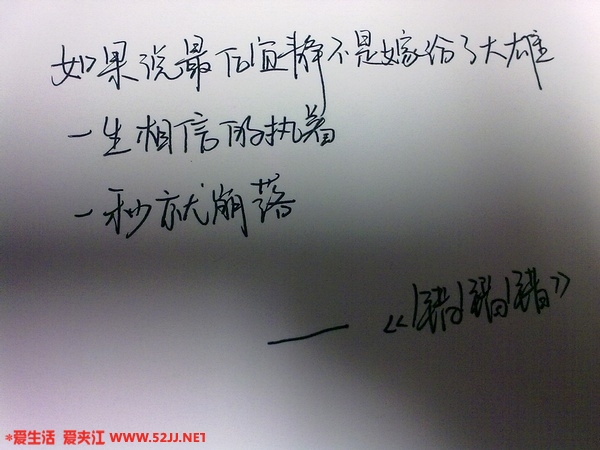 如果说最后宜静不是嫁给了大雄
一生相信的执着
一秒就崩落
——《错错错》
*爱生活 爱夹江 WWW.52JJ.NET